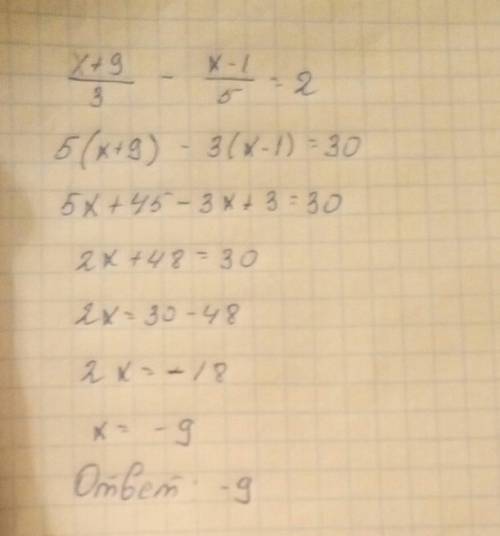 (x+9)/3 - (x-1)/5 = 2
5(x+9) - 3(x-1) = 30
5x+45-3x+3=30
2x+48=30
2x=30-48
2x=-18
x=-9
Ответ: -9